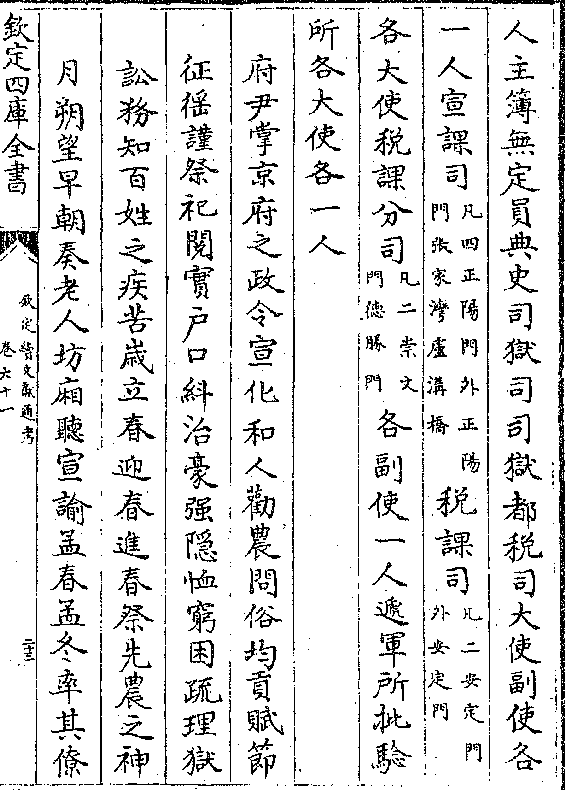 人主簿無定員典史司獄司司獄都税司大使副使各
一人宣課司凡四正陽門外正陽門張家灣盧溝橋税課司凡二安定門外安定門
各大使税課分司凡二崇文門德勝門各副使一人遞軍所批驗
所各大使各一人
府尹掌京府之政令宣化和人勸農問俗均貢賦節
征徭謹祭祀閱實戸口糾治豪强隠恤窮困疏理獄
訟務知百姓之疾苦歳立春迎春進春祭先農之神
月朔望早朝奏老人坊廂聽宣諭孟春孟冬率其僚
欽定四庫全書
欽定續文獻通考
卷六十一
二十三